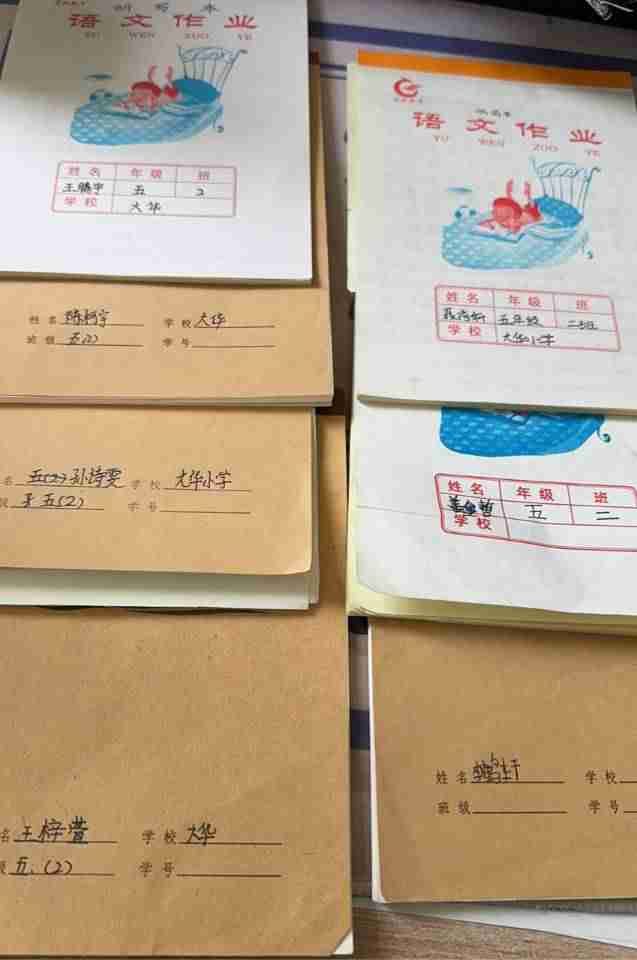 听写本
语文作业
YU WEN ZUO YE
姓名 年级 班
王鹏宇 五 2
学校 大华
姓名 陈柯宇 学校 大华
班级 五(2) 学号
名 五(2)孙诗雯 学校 大华小学
级 五(2) 学号
名 王梓萱 学校 大华
级 五.(2) 学号
听写本
语文作业
YU WEN ZUO YE
姓名 年级 班
五年级 二班
学校 大华小学
姓名 年级 班
五 二
学校
姓名 学校
班级 学号